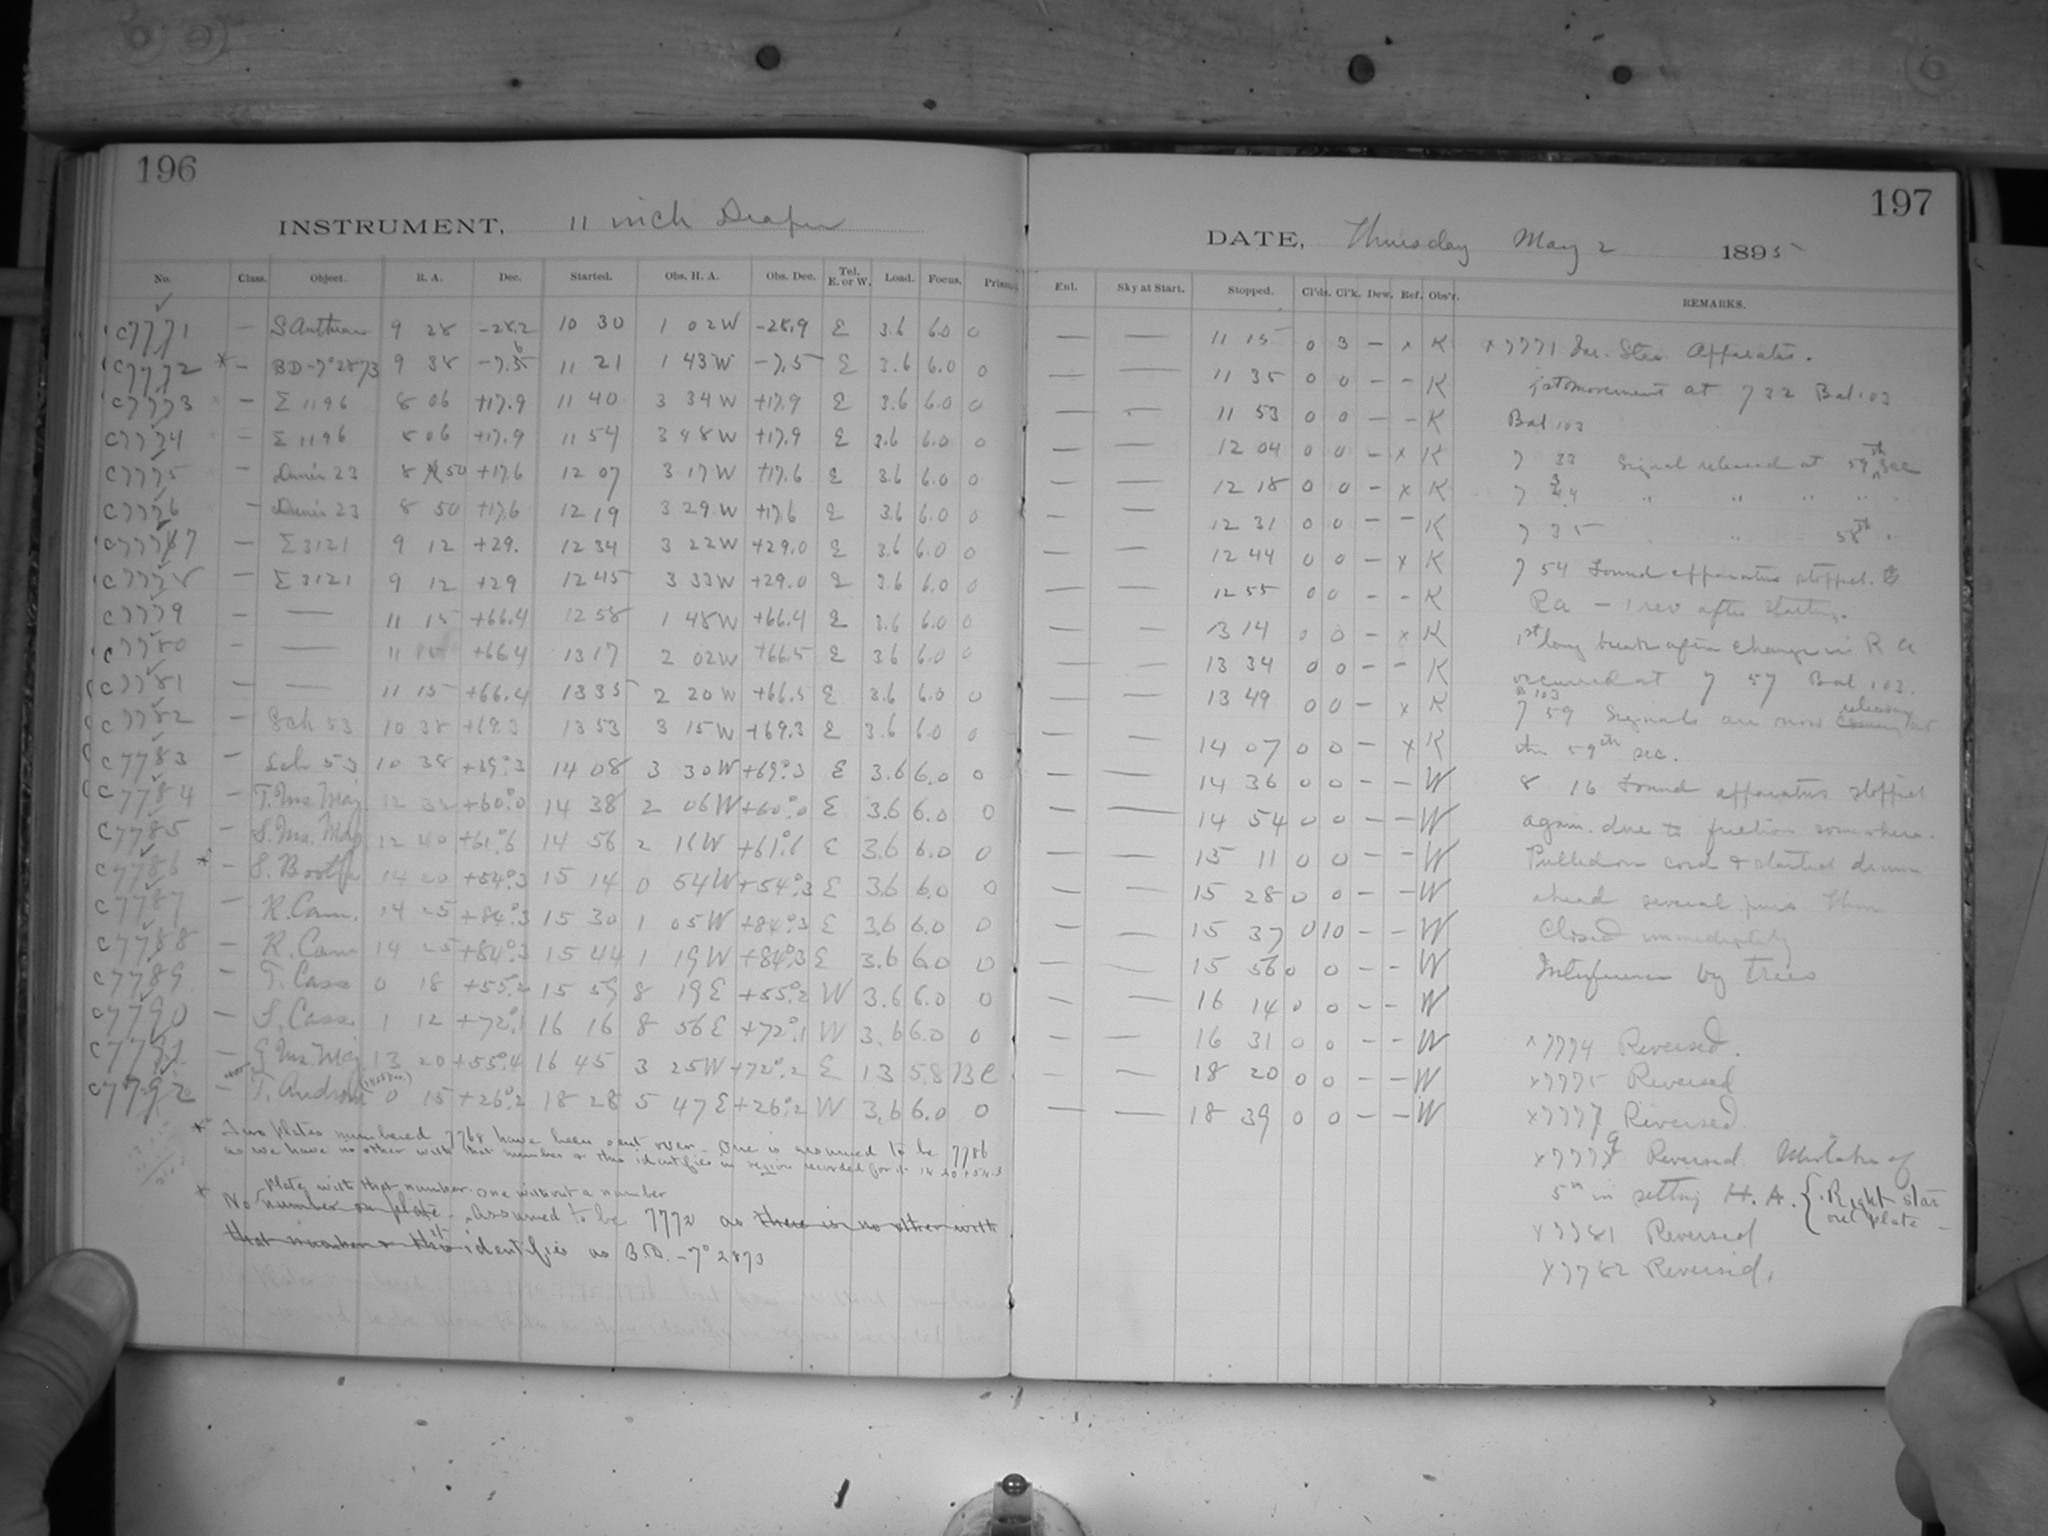 196
INSTRUMENT, 11 inch Draper
No. Class. Object. R. A. Dec. Started. Obs. H. A. Obs. Dec. Tel. E. or W. Load. Focus. Prisms.
c7771 — S Antliae 9 28 -28.2 10 30 1 02W -28.9 E 3.6 6.0 0
c7772 * — BD -7°2873 9 38 11 21 1 43W -7.5 E 3.6 6.0 0
c7773 — Σ 1196 8 06 +17.9 11 40 3 34W +17.9 E 3.6 6.0 0
c7774 — Σ 1196 8 06 +17.9 11 54 3 48W +17.9 E 3.6 6.0 0
c7775 — 23 8 50 +17.6 12 07 3 17W +17.6 E 3.6 6.0 0
c7776 — 23 8 50 +17.6 12 19 3 29W +17.6 E 3.6 6.0 0
c7777 — Σ 3121 9 12 +29. 12 34 3 22W +29.0 E 3.6 6.0 0
c7778 — Σ 3121 9 12 +29 12 45 3 33W +29.0 E 3.6 6.0 0
c7779 — — 11 15 +66.4 12 58 1 48W +66.4 E 3.6 6.0 0
c7780 — — 11 +66.4 13 17 2 02W +66.5 E 3.6 6.0 0
c7781 — — 11 15 +66.4 13 35 2 20W +66.5 E 3.6 6.0 0
c7782 — Sch 53 10 38 +69.3 13 53 3 15W +69.3 E 3.6 6.0 0
c7783 — Sch 53 10 38 14 08 3 30W +69°.3 E 3.6 6.0 0
c7784 — T. Urs. Maj. 12 32 +60°.0 14 38 2 06W +60°.0 E 3.6 6.0 0
c7785 — S. Urs. Maj. 12 40 +61°.6 14 56 2 16W +61°.6 E 3.6 6.0 0
c7786 * — S. Bootis 14 20 +54°.3 15 14 0 54W +54°.3 E 3.6 6.0 0
c7787 — R. Cam. 14 25 +84°.3 15 30 1 05W +84°.3 E 3.6 6.0 0
c7788 — R. Cam 14 25 +84°.3 15 44 1 19W +84°.3 E 3.6 6.0 0
c7789 — T. Cass 0 18 +55°.2 15 59 8 19E +55°.2 W 3.6 6.0 0
c7790 — S. Cass. 1 12 +72°.1 16 16 8 56E +72°.1 W 3.6 6.0 0
c7791 — Urs. Maj 13 20 +55°.4 16 45 3 25W +72°.2 E 13 5.8 BC
c7792 — T. Androm 0 15 +26°.2 18 28 5 47E +26°.2 W 3.6 6.0 0
* Two plates numbered 7768 have been sent over. One is assumed to be 7786
as we have no other with that number & this identifies in region recorded for it. 14 20 +54.3
plate with that number. One without a number
* No number on plate. Assumed to be 7772 as there is no other with
that number & this it identifies as B.D. -7° 2873
197
DATE, Thursday May 2 1895
Enl. Sky at Start. Stopped. Cl'ds. Cl'k. Dew. Ref. Obs'r. REMARKS.
— — 11 15 0 3 — x K x7771 Apparatus.
— — 11 35 0 0 — — K 1st movement at 7 32 Bal 103
— — 11 53 0 0 — — K Bal 103
— — 12 04 0 0 — x K 7 33 Signal released at 59th sec
— — 12 18 0 0 — x K 7 " " " "
— — 12 31 0 0 — — K 7 35 " 58th "
— — 12 44 0 0 — x K 7 54 Found apparatus stopped.
— — 12 55 0 0 — — K RA — 1 rev after starting.
— — 13 14 0 0 — x K 1st long break after change in R A
— — 13 34 0 0 — — K occurred at 7 57 Bal 103.
— — 13 49 0 0 — x K 7 59 Signals are now releasing at
— — 14 07 0 0 — x K the 59th sec.
— — 14 36 0 0 — — W 8 16 Found apparatus stopped
— — 14 54 0 0 — — W again. due to friction somewhere.
— — 15 11 0 0 — — W Pulled on cord & started drum
— — 15 28 0 0 — — W ahead several then
— — 15 37 0 10 — — W Closed immediately
— — 15 56 0 0 — — W Interference by trees
— — 16 14 0 0 — — W
— — 16 31 0 0 — — W x7774 Reversed.
— — 18 20 0 0 — — W x7775 Reversed
— — 18 39 0 0 — — W x7777 Reversed.
x7779 Reversed Mistake of
5m in setting H. A. { Right star on plate —
x7781 Reversed
x7782 Reversed.